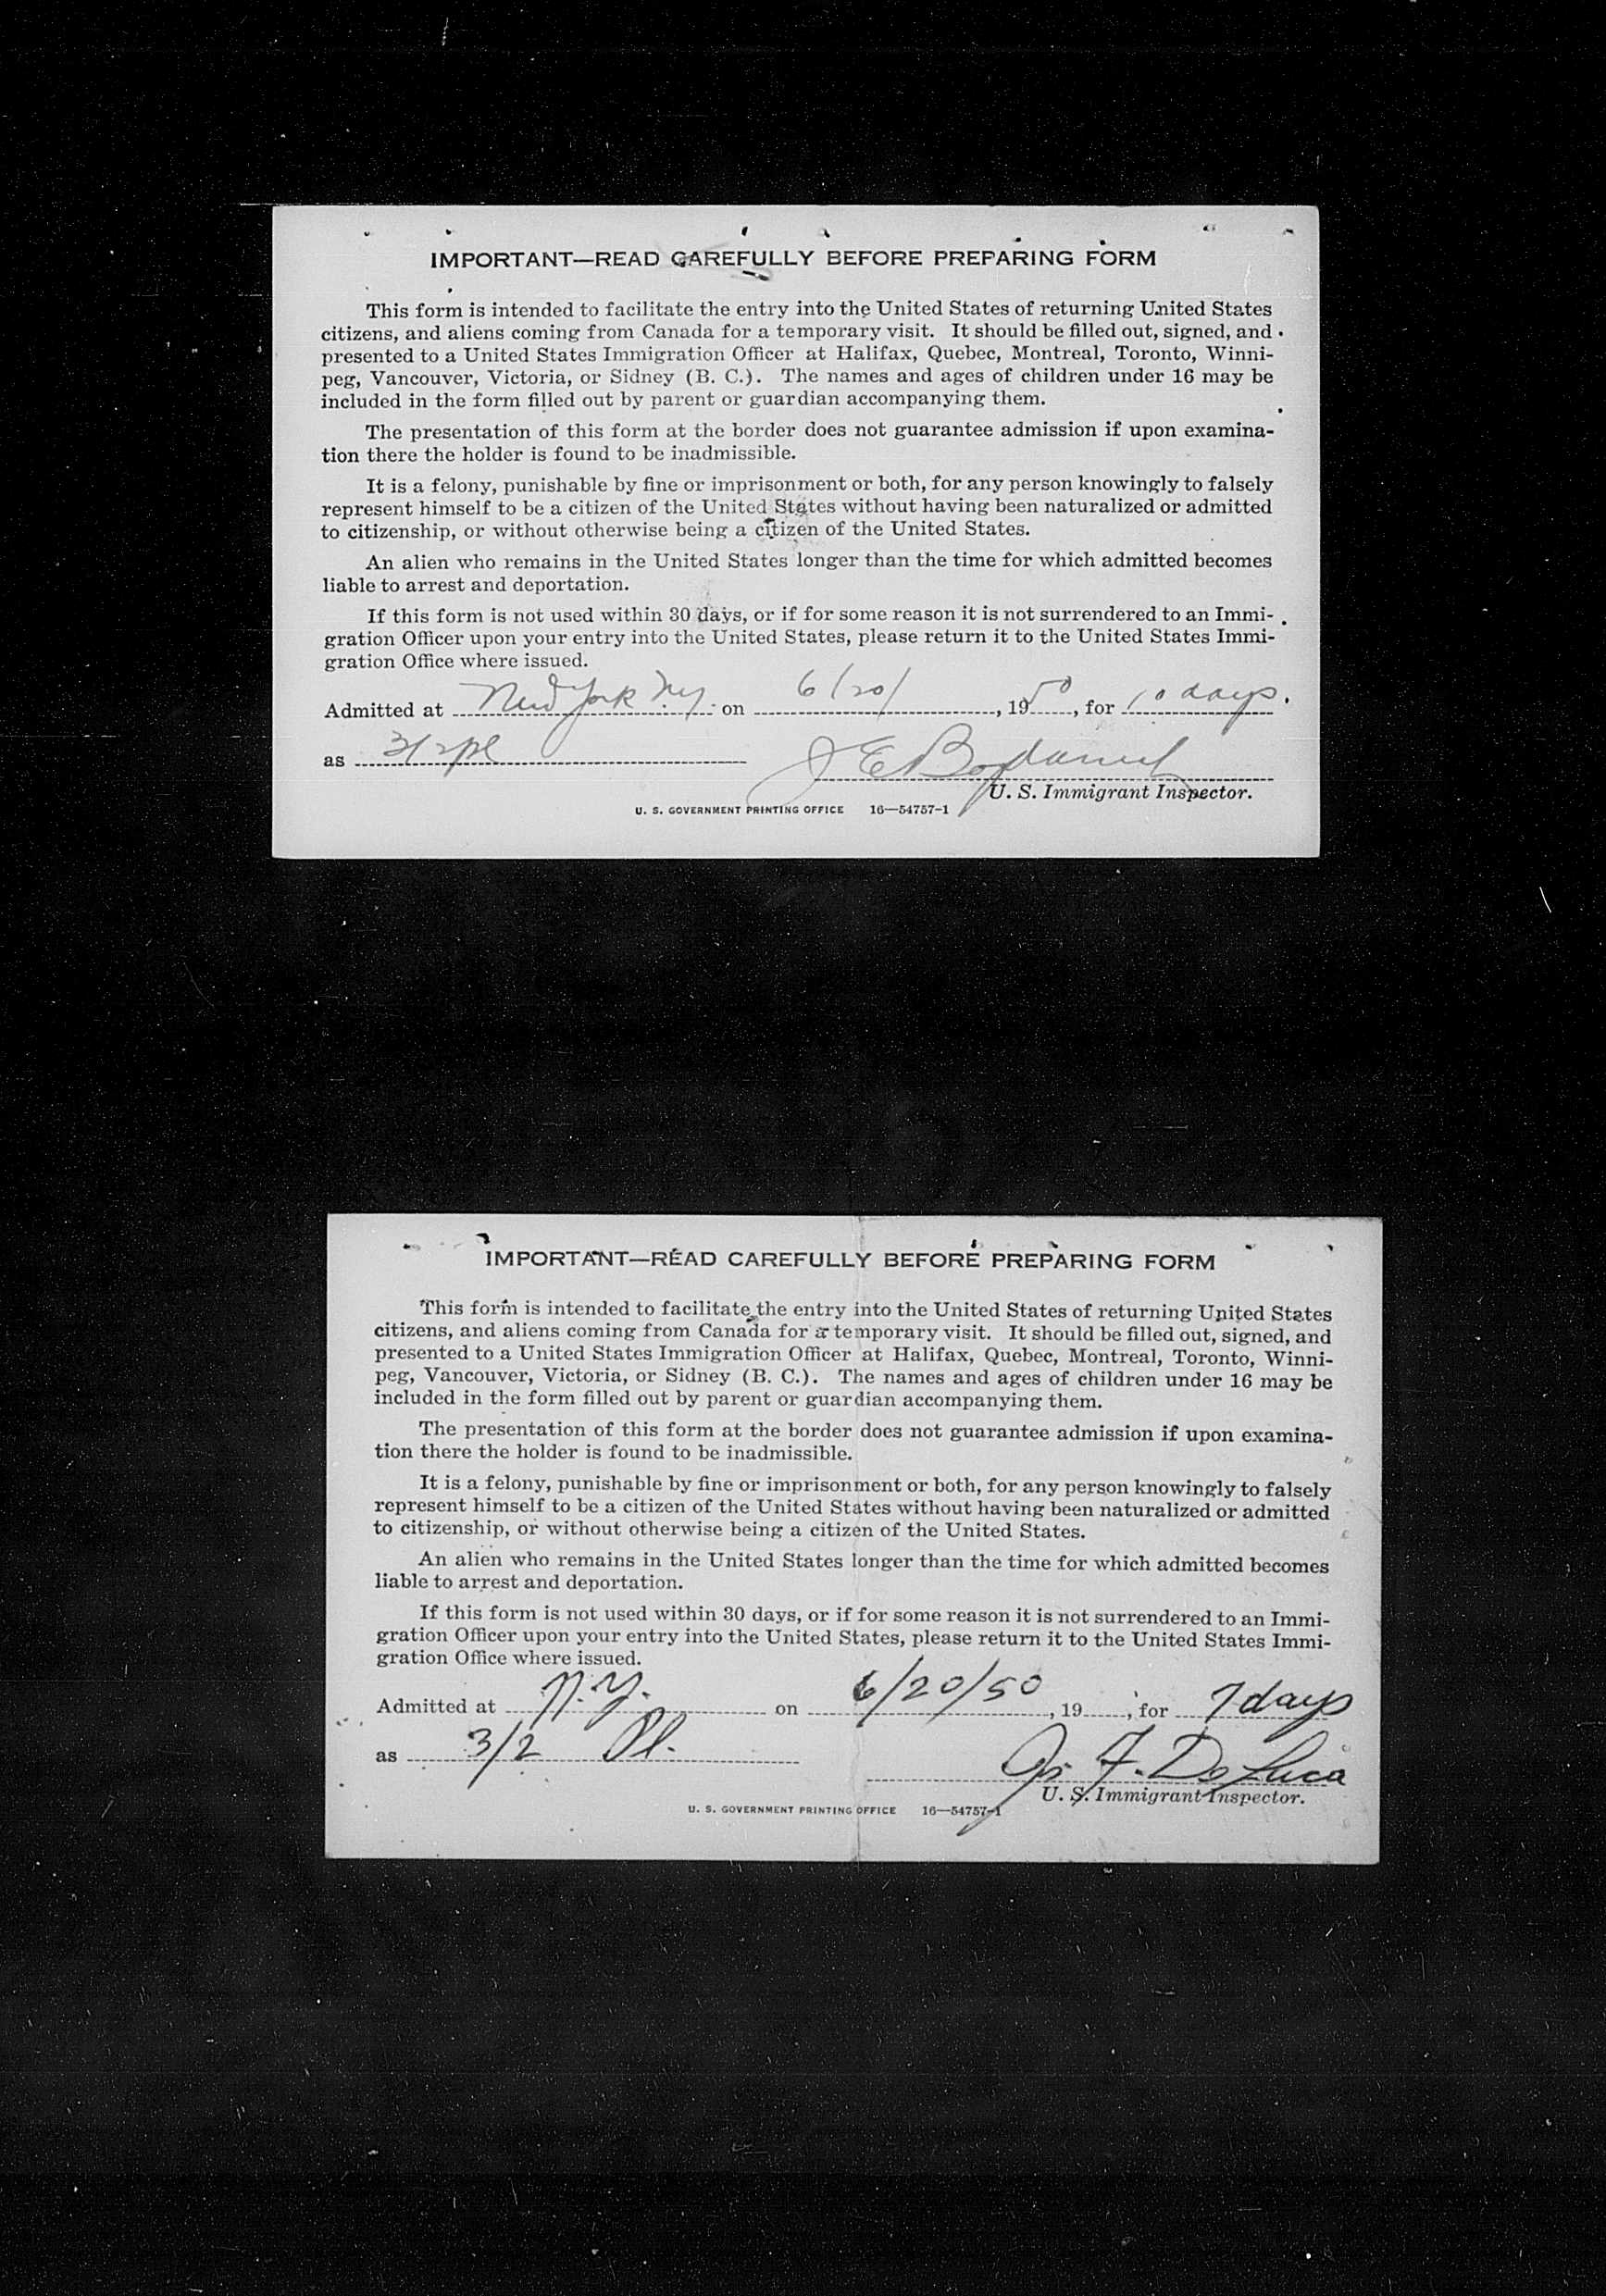 IMPORTANT—READ CAREFULLY BEFORE PREPARING FORM
This form is intended to facilitate the entry into the United States of returning United States
citizens, and aliens coming from Canada for a temporary visit. It should be filled out, signed, and
presented to a United States Immigration Officer at Halifax, Quebec, Montreal, Toronto, Winni-
peg, Vancouver, Victoria, or Sidney (B. C.). The names and ages of children under 16 may be
included in the form filled out by parent or guardian accompanying them.
The presentation of this form at the border does not guarantee admission if upon examina-
tion there the holder is found to be inadmissible.
It is a felony, punishable by fine or imprisonment or both, for any person knowingly to falsely
represent himself to be a citizen of the United States without having been naturalized or admitted
to citizenship, or without otherwise being a citizen of the United States.
An alien who remains in the United States longer than the time for which admitted becomes
liable to arrest and deportation.
If this form is not used within 30 days, or if for some reason it is not surrendered to an Immi-
gration Officer upon your entry into the United States, please return it to the United States Immi-
gration Office where issued.
Admitted at New York NY on 6/20/, 1950, for 10 days.
as 3/2 pl J E
U. S. Immigrant Inspector.
U. S. GOVERNMENT PRINTING OFFICE 16—54757-1
IMPORTANT—READ CAREFULLY BEFORE PREPARING FORM
This form is intended to facilitate the entry into the United States of returning United States
citizens, and aliens coming from Canada for a temporary visit. It should be filled out, signed, and
presented to a United States Immigration Officer at Halifax, Quebec, Montreal, Toronto, Winni-
peg, Vancouver, Victoria, or Sidney (B. C.). The names and ages of children under 16 may be
included in the form filled out by parent or guardian accompanying them.
The presentation of this form at the border does not guarantee admission if upon examina-
tion there the holder is found to be inadmissible.
It is a felony, punishable by fine or imprisonment or both, for any person knowingly to falsely
represent himself to be a citizen of the United States without having been naturalized or admitted
to citizenship, or without otherwise being a citizen of the United States.
An alien who remains in the United States longer than the time for which admitted becomes
liable to arrest and deportation.
If this form is not used within 30 days, or if for some reason it is not surrendered to an Immi-
gration Officer upon your entry into the United States, please return it to the United States Immi-
gration Office where issued.
Admitted at N.Y. on 6/20/50, 19, for 7 days
as 3/2 Pl. Jos. F. De Luca
U. S. Immigrant Inspector.
U. S. GOVERNMENT PRINTING OFFICE 16—54757-1